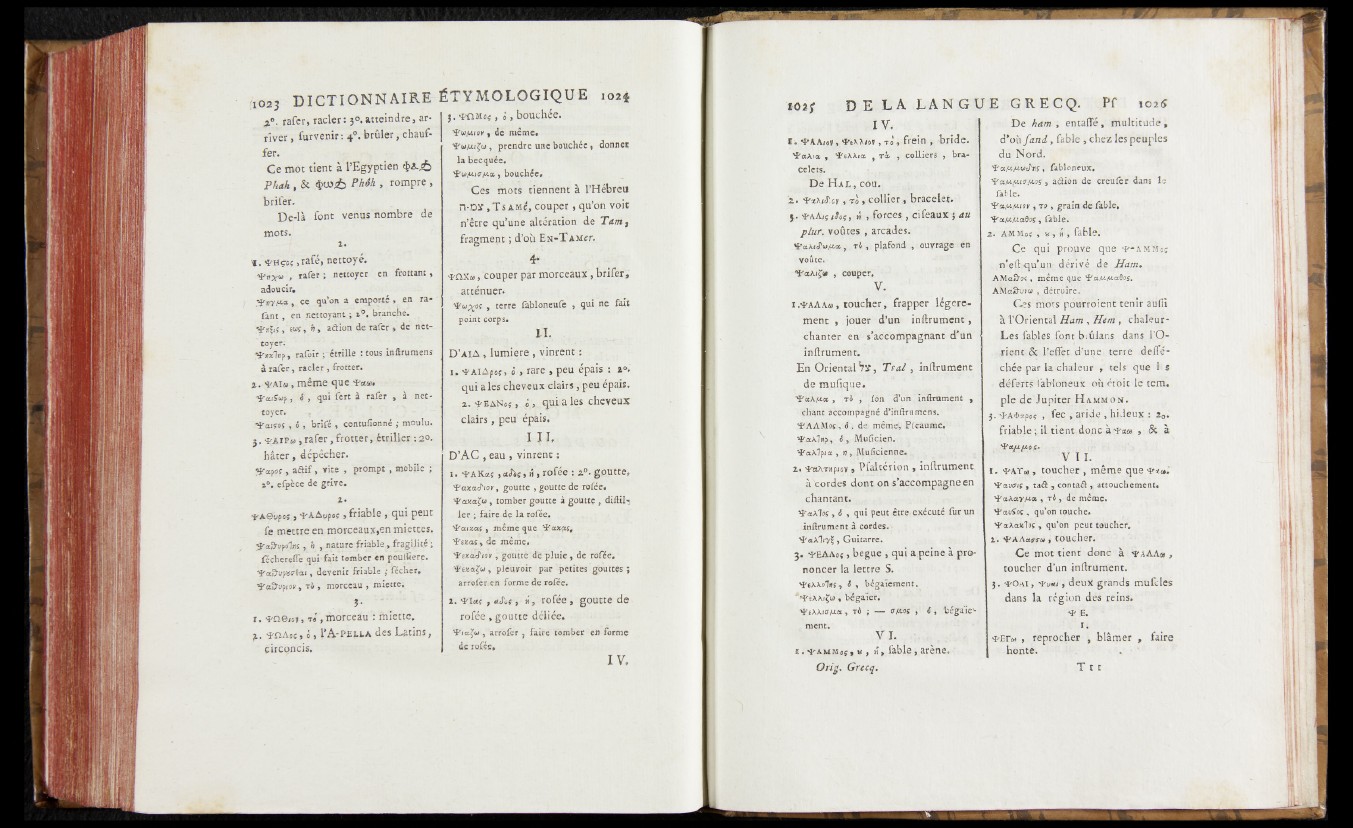 1023 DICTIONNAIRE ÉTYMOLOGIQUE 1024
2°. raſer, racler : 3°. atteindre, ar-
river, ſurvenir : 4°. brûler, chauf-
fer.
Ce mot tient à l'Egyptien ϕⲁϩ
Phah, & ϕⲱϩ Phôh, rompre,
briſer.
De-là ſont venus nombre de
mots.
1.
1. ΨΗϛος, raſé, nettoyé.
Ψηχω, raſer ; nettoyer en frottant,
adoucir.
Ψηγμα, ce qu'on a emporté, en ra-
ſant, en nettoyant ; 2°. branche.
Ψηξις, εως, ἡ, action de raſer, de net-
toyer.
Ψηκτηρ, raſoir ; étrille : tous inſtrumens
à raſer, racler, frotter.
2. ΨΑΙω, même que Ψαω.
Ψαιϛωρ, ὁ, qui ſert à raſer, à net-
toyer.
Ψαιϛος, ὁ, briſé, contuſionné ; moulu.
3. ΨΑΙΡω, raſer, frotter, étriller : 2o.
hâter, dépêcher.
Ψαρος, actif, vite, prompt, mobile ;
2°. eſpèce de grive.
2.
ΨΑΘυρος, ΨΑΔυρος, friable, qui peut
ſe mettre en morceaux, en miettes.
Ψαθυροτης, ἡ, nature friable, fragilité ;
ſéchereſſe qui fait tomber en pouſſiere.
Ψαθυρουται, devenir friable ; ſécher.
Ψαθυριον, τὸ, morceau, miette.
3.
1. ΨΩΘιον, τὸ, morceau : miette.
2. ΨΩΛος, ὁ, l'A-PELLA des Latins,
circoncis.
3. ΨΩΜος, ὁ, bouchée.
Ψωμιον, de même.
Ψωμιζω, prendre une bouchée, donner
la becquée.
Ψωμισμα, bouchée.
Ces mots tiennent à l'Hébreu
צמ-ח, TSAMé, couper, qu'on voit
n'être qu'une altération de Tam,
fragment ; d'où EN-TAMer.
4.
ΨΩΧω, couper par morceaux, briſer,
atténuer.
Ψωχος, terre ſabloneuſe, qui ne fait
point corps.
II.
D'AIA, lumiere, vinrent :
1. ΨΑΙΔρος, ὁ, rare, peu épais : 2°.
qui a les cheveux clairs, peu épais.
2. ΨΕΔΝος, ὁ, qui a les cheveux
clairs, peu épais.
III.
D'AC, eau, vinrent :
1. ΨΑΚας, αδος, ἡ, roſée : 2°. goutte,
Ψακαδιον, goutte, goutte de roſée.
Ψακαζω, tomber goutte à goutte, diſtil-
ler ; faire de la roſée.
Ψαικας, même que Ψακας,
Ψεκας, de même.
Ψεκαδιον, goutte de pluie, de roſée.
Ψεκαζω, pleuvoir par petites gouttes ;
arroſer en forme de roſée.
2. Ψίας, αδος, ἡ, roſée, goutte de
roſée, goutte déliée.
Ψιαζω, arroſer, faire tomber en forme
de roſée.
IV.
1025 DE LA LANGUE GRECQ. Pſ 1026
IV.
1. ΨΑΛιον, Ψελλιον, τὸ, frein, bride.
Ψαλια, Ψελλια, τὰ, colliers, bra-
celets.
De HAL, cou.
2. Ψαλιδιον, τὸ, collier, bracelet.
3. ΨΑΛις ιδος, ἡ, forces, ciſeaux ; au
plur. voûtes, arcades.
Ψαλιδωμα, τὸ, plafond, ouvrage en
voûte.
Ψαλιζω, couper,
V.
1. ΨΑΛΛω, toucher, frapper légere-
ment, jouer d'un inſtrument,
chanter en s'accompagnant d'un
inſtrument.
En Oriental צל, Tzal, inſtrument
de muſique.
Ψαλμα, τὸ, ſon d'un inſtrument,
chant accompagné d'inſtrumens.
ΨΑΛΜος, ὁ, de même, Pſeaume.
Ψαλτηρ, ὁ, Muſicien.
Ψαλτρια, ἡ, Muſicienne.
2. Ψαλτηριον, Pſaltérion, inſtrument
à cordes dont on s'accompagne en
chantant.
Ψαλτος, ὁ, qui peut être exécuté ſur un
inſtrument à cordes.
Ψαλτιγξ, Guitarre.
3. ΨΕΛΛος, bègue, qui a peine à pro-
noncer la lettre S.
Ψελλοτης, ὁ, bégaiement.
Ψελλιζω, bégaier.
Ψελλισμα, τὸ ; — σμος, ὁ, bégaie-
ment.
VI.
1. ΨΑΜΜος, υ, ἡ, ſable, arène.
Orig. Grecq.
De ham, entaſſé, multitude,
d'où ſand, ſable, chez les peuples
du Nord.
Ψαμμωδης, ſabloneux.
Ψαμμισμος, action de creuſer dans le
ſable.
Ψαμμιον, το, grain de ſable.
Ψαμμαθος, ſable.
2. ΑΜΜος, υ, ἡ, ſable.
Ce qui prouve que Ψ-ΑΜΜος
n'eſt qu'un dérivé de Ham.
ΑΜαθος, même que Ψαμμαθος.
ΑΜαθυνω, détruire.
Ces mots pourroient tenir auſſi
à l'Oriental Ham, Hem, chaleur-
Les ſables ſont brûlans dans l'O-
rient & l'effet d'une terre deſſé-
chée par la chaleur, tels que les
déſerts ſabloneux où étoit le tem.
ple de Jupiter HAMMON.
3. ΨΑΦαρος, ſec, aride, hideux : 2o.
friable ; il tient donc à Ψαω, & à
Ψαμμος.
VII.
1. ΨΑΥω, toucher, même que Ψαω.
Ψαυσις, tact, contact, attouchement.
Ψαλαγμα, τὸ, de même.
Ψαυϛος, qu'on touche.
Ψαλακτος, qu'on peut toucher.
2. ΨΑΛασσω, toucher.
Ce mot tient donc à ΨΑΛΛω,
toucher d'un inſtrument.
3. ΨΟΑΙ, Ψυαι, deux grands muſcles
dans la région des reins.
Ψ Ε.
1.
ΨΕΓω, reprocher, blâmer, faire
honte.
Ttt